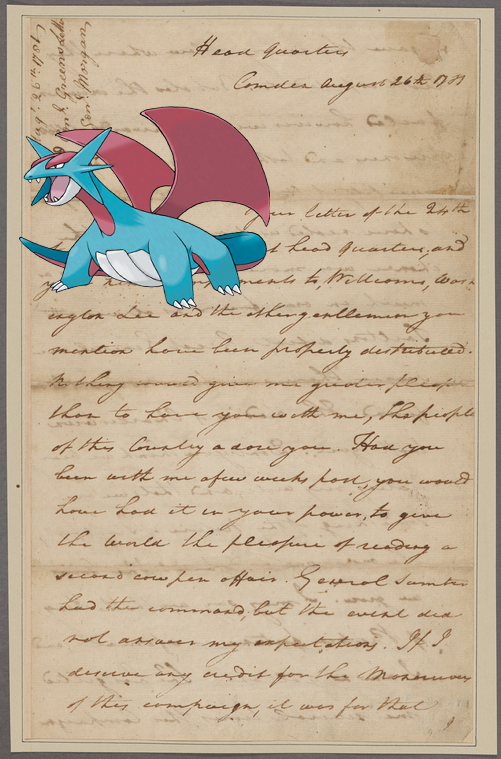 Head quarters
Camden August 26th 1781
Genl. Greens letter
Genl. Morgan,
your letter of the 24th
head quarters, and
ments to Williams, Wash
ington Lee and the other gentlemen you
mention have been properly distributed.
Nothing would give me greater pleas
than to have you with me, the people
of this Country adore you. Had you
been with me a few weeks past, you would
have had it in your power, to give
the World the pleasure of reading a
second cowpen affair. General Sumter
had the command, but the event did
not answer my expectations. If I
deserve any credit for the Manuvers
of this campaign, it was for that